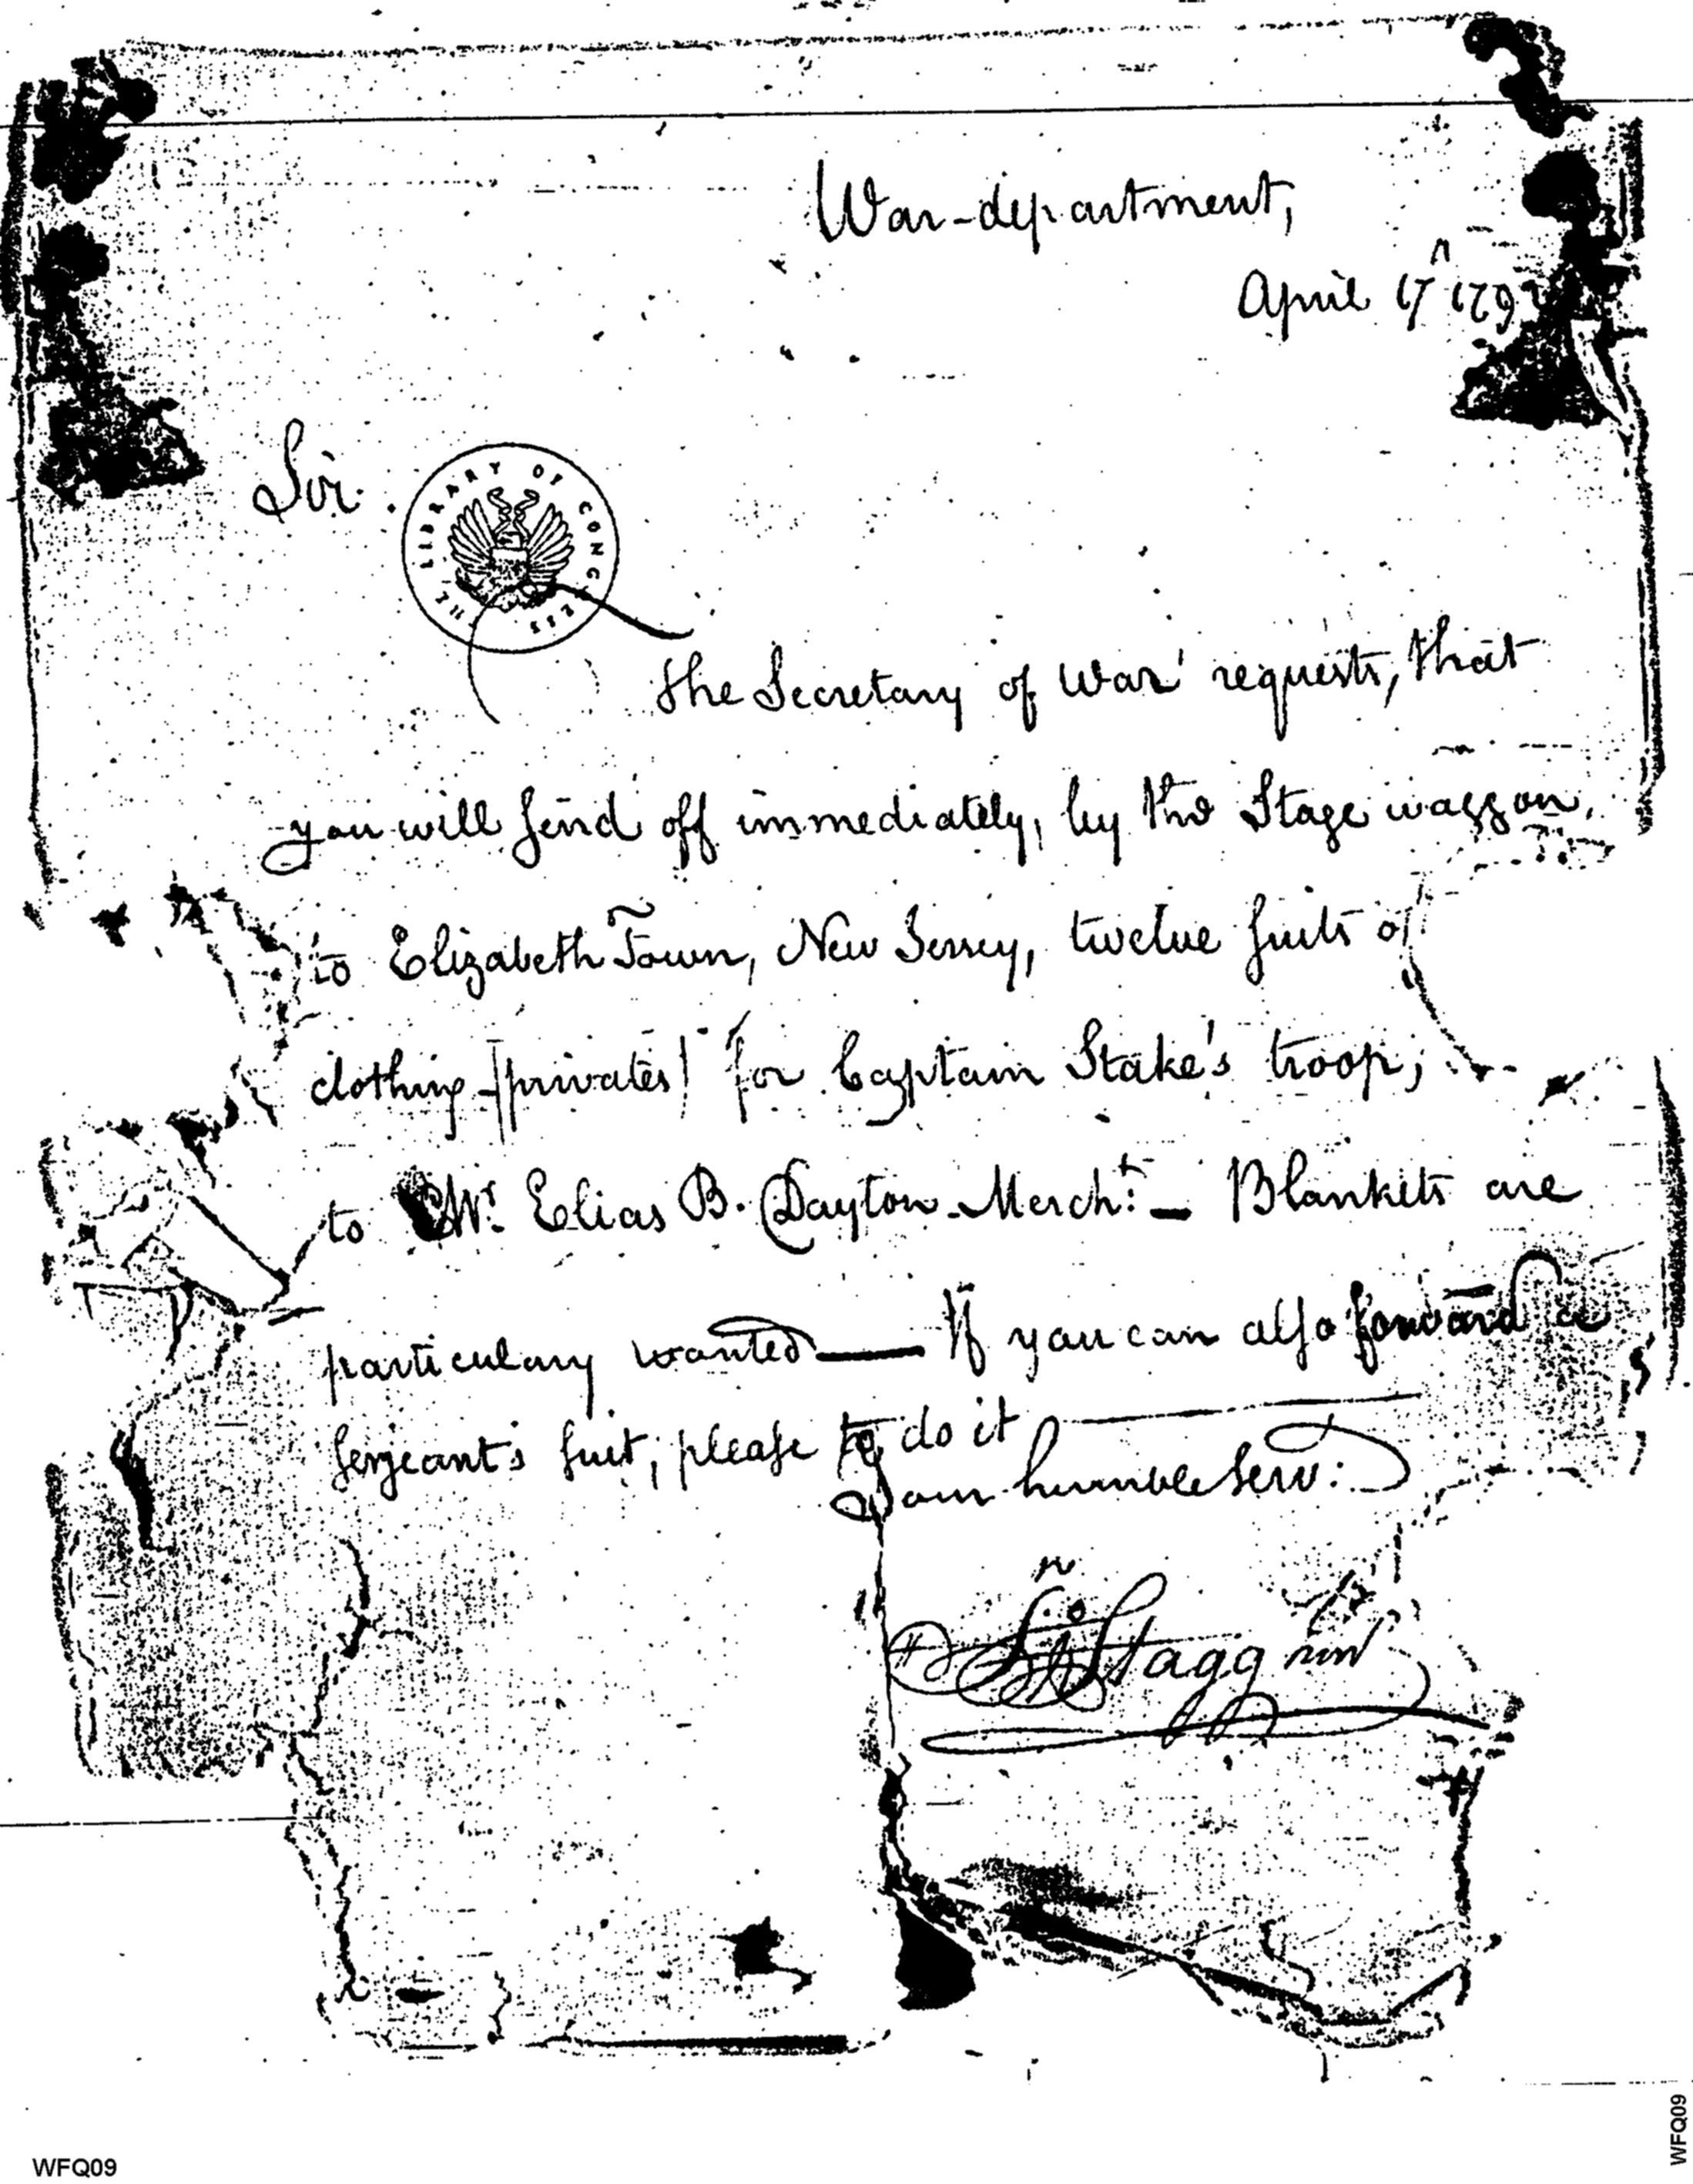 War-department,
April 17 179
Sir.
THE LIBRARY OF CONGRESS
The Secretary of War requests, that
you will send off immediately, by the Stage waggon,
to Elizabeth Town, New Jersey, twelve suits of
clothing [privates] for Captain Stake's troop;
to Mr. Elias B. Dayton Mercht: — Blankets are
particulary wanted — If you can also forward a
sergeant's suit, please to do it
Your humble serv:
Stagg
WFQ09
WFQ09